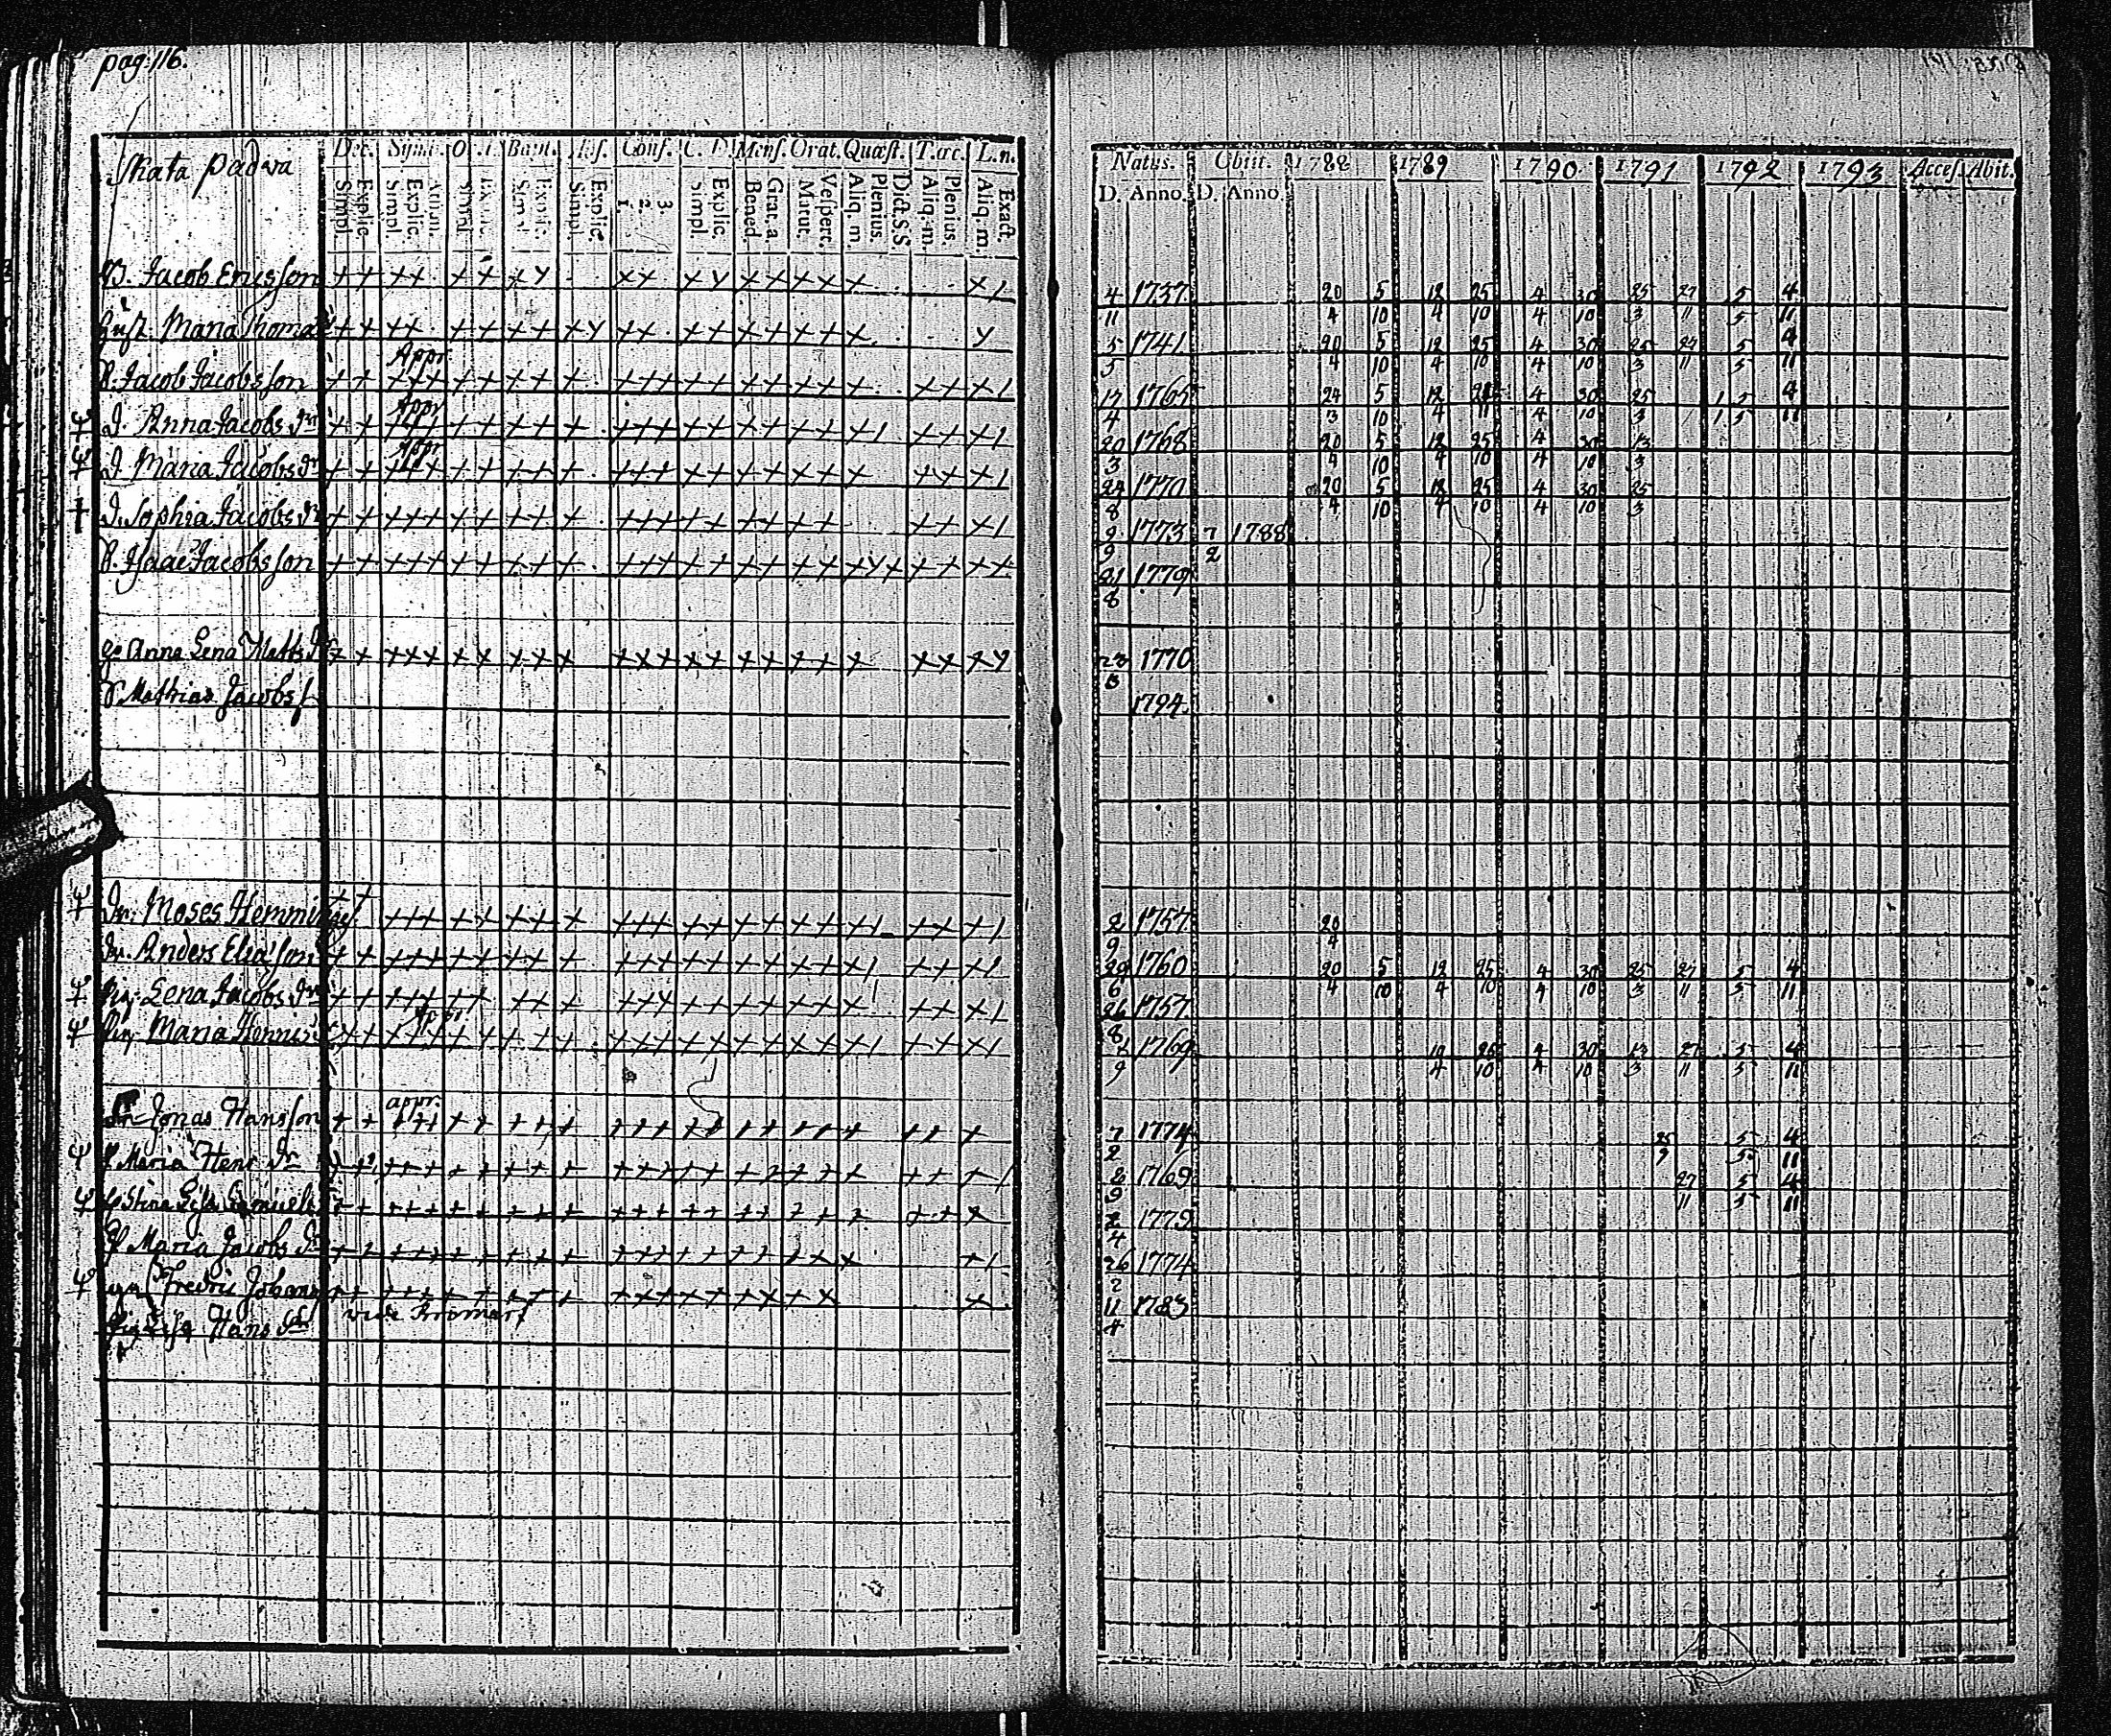 pag: 116.
Skata Padva
Dec. Symb. Bapt. Conf. C. D. Mens. Orat. Quæst. T. œc. L. n.
Simpl. Explic. Simpl. Explic. Simpl. Explic. Simpl. Explic. 1. 2. 3. Simpl. Explic. Bened. Grat. a. Matut. Vesperc. Aliq. m. Plenius. Dict. S. S Aliq. m. Plenius. Aliq. m. Exact.
B. Jacob Ericsson
Hust. Maria Thomæ
S. Jacob Jacobsson Appr
D. Anna Jacobs dr Appr
D. Maria Jacobs dr Appr
D. Sophia Jacobs dr
S. Isaac Jacobsson
Anna Lena Matts dr
S. Mathias Jacobs
Dr. Moses Hemming
Dr. Anders Eliasson
Pig. Lena Jacobs dr
Pig. Maria Henric
Dr Jonas Hansson appr.
P Maria Henr dr
Stina Lisa Samuels
P Maria Jacobs dr
Fredric Johans
Pig Lisa Hans dr vide
Natus. Obiit. 1788 1789 1790 1791 1792 1793 Access. Abit.
D. Anno. D. Anno.
4 1737 20 5 12 25 4 30 25 27 5 4
11 4 10 4 10 4 10 3 11 5 11
5 1741 20 5 12 25 4 30 25 27 5 4
5 4 10 4 10 4 10 3 11 5 11
17 1765 24 5 12 4 30 25 5 4
4 3 10 4 11 4 10 3 5 11
20 1768 20 5 12 25 4 30 13
3 4 10 4 10 4 10 3
24 1770 20 5 12 25 4 30 25
8 4 10 4 10 4 10 3
9 1773 7 1788
9 2
21 1779
8
23 1770
1794
2 1757 20
9 4
29 1760 20 5 12 25 4 30 25 27 5 4
6 4 10 4 10 4 10 3 11 5 11
26 1757
8
1769 12 25 4 30 13 27 5 4
9 4 10 4 10 3 11 5 11
7 1774 25 5 4
2 9 5 11
2 1769 27 5 4
9 11 5 11
2 1779
4
26 1774
2
11 1783
4